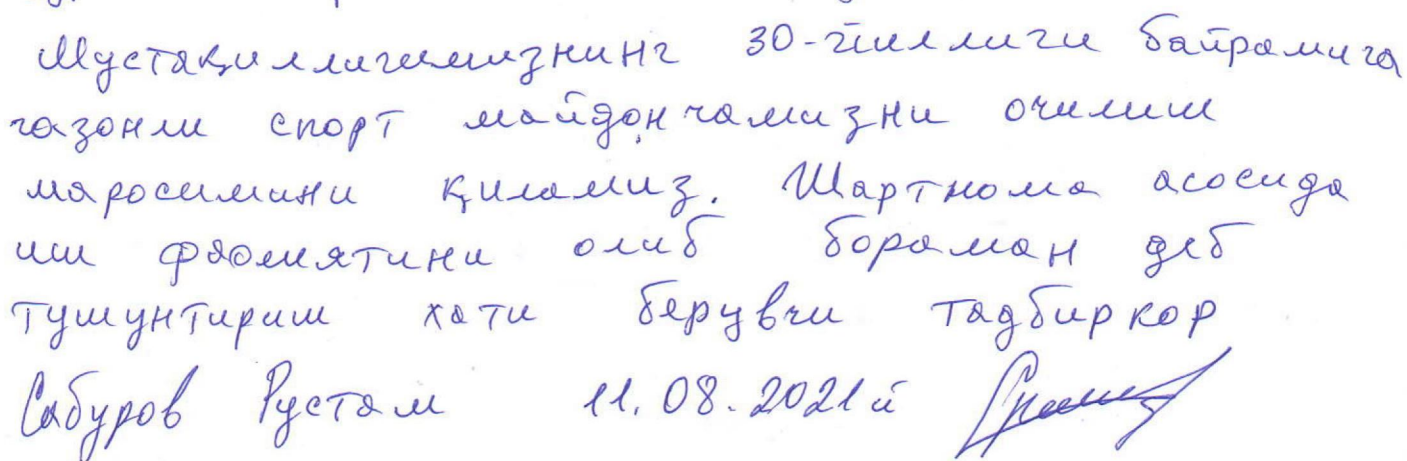 Мустақиллигимизнинг 30-йиллиги байрамига
газонли спорт майдончамизни очилиш
маросимини қиламиз. Шартнома асосида
иш фаолиятини олиб бораман деб
тушунтириш хати берувчи тадбиркор
Сабуров Рустам 11.08.2021й